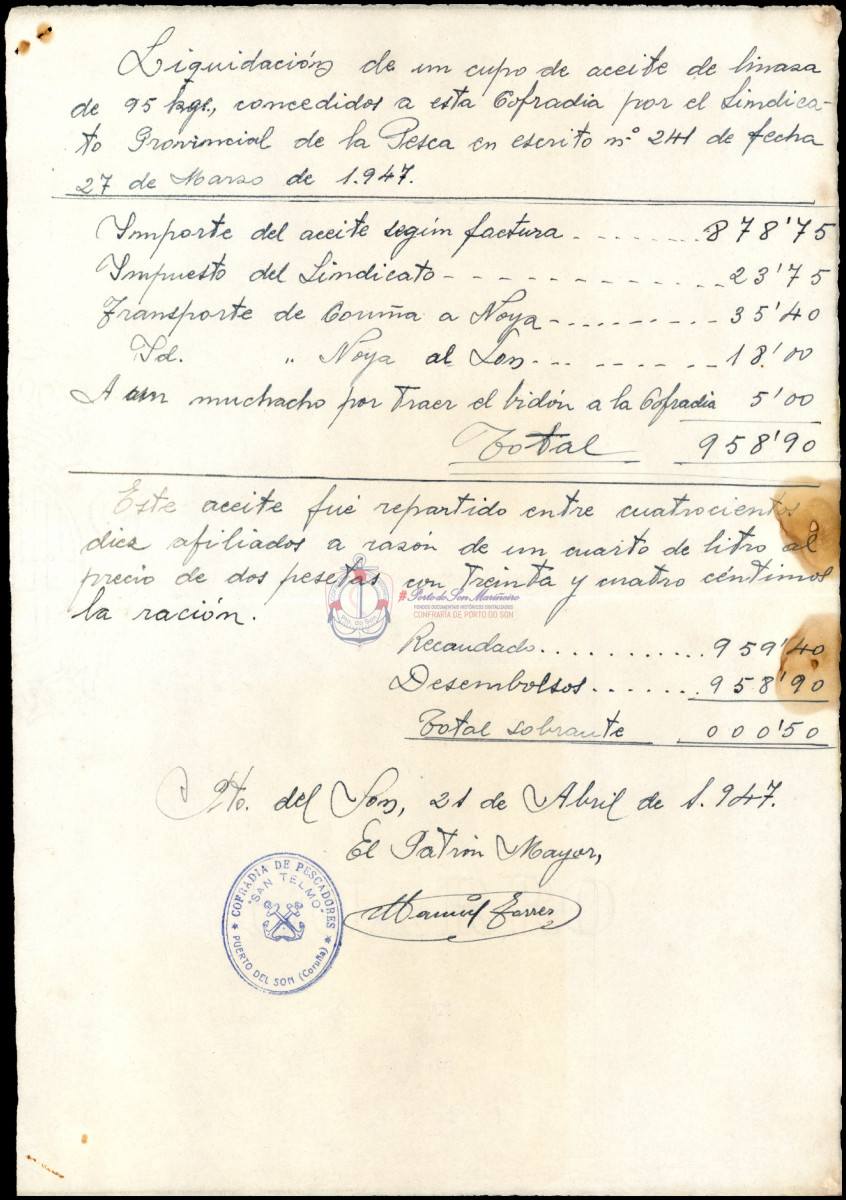 Liquidación de un cupo de aceite de linaza
de 95 kgs., concedidos a esta Cofradia por el Sindica-
to Provincial de la Pesca en escrito nº 241 de fecha
27 de Marzo de 1.947.
Importe del aceite según factura - - - - - - - 878'75
Impuesto del Sindicato - - - - - - - - - - - 23'75
Transporte de Coruña a Noya - - - - - - - - 35'40
Id. " Noya al Son - - - - - - - - 18'00
A un muchacho por traer el bidón a la Cofradia 5'00
Total 958'90
Este aceite fué repartido entre cuatrocientos
diez afiliados a razón de un cuarto de litro al
precio de dos pesetas con treinta y cuatro céntimos
la ración.
Pto. do Son
#Porto do Son Mariñeiro
FONDOS DOCUMENTAIS HISTÓRICOS DIXITALIZADOS
CONFRARÍA DE PORTO DO SON
Recaudado............ 959'40
Desembolsos....... 958'90
Total sobrante 000'50
Pto. del Son, 21 de Abril de 1.947.
El Patrón Mayor,
Manuel Torres
COFRADIA DE PESCADORES
"SAN TELMO"
PUERTO DEL SON (Coruña)